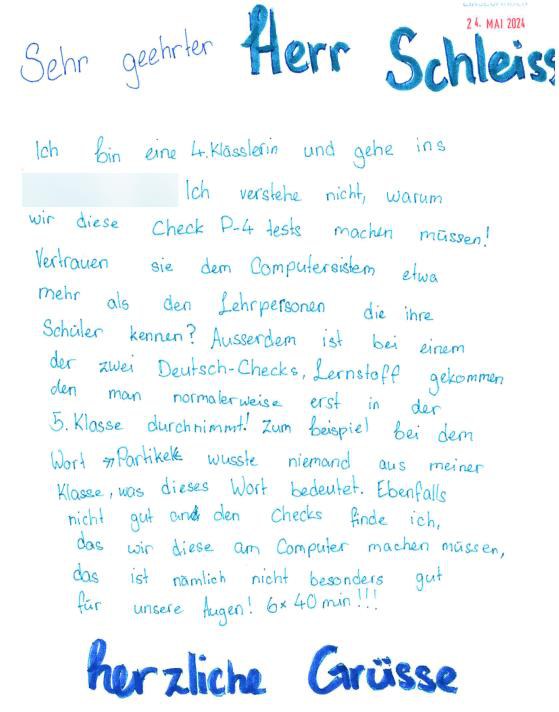 24. MAI 2024
Sehr geehrter Herr Schleiss
Ich bin eine 4.Klässlerin und gehe ins
Ich verstehe nicht, warum
wir diese Check P-4 tests machen müssen!
Vertrauen sie dem Computersistem etwa
mehr als den Lehrpersonen die ihre
Schüler kennen? Ausserdem ist bei einem
der zwei Deutsch-Checks, Lernstoff gekommen
den man normalerweise erst in der
5. Klasse durchnimmt! Zum beispiel bei dem
Wort »Partikel« wusste niemand aus meiner
Klasse, was dieses Wort bedeutet. Ebenfalls
nicht gut and den Checks finde ich,
das wir diese am Computer machen müssen,
das ist nämlich nicht besonders gut
für unsere Augen! 6x 40 min!!!
herzliche Grüsse